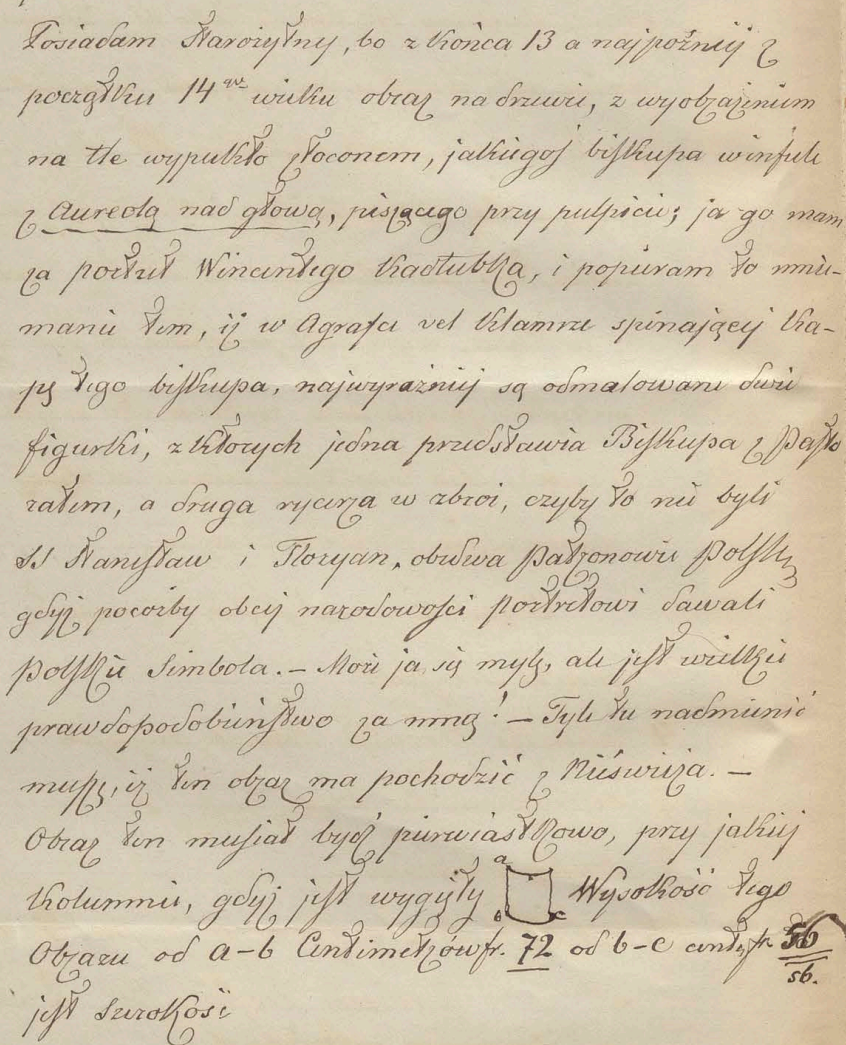 Posiadam starożytny, bo z końca 13 a najpóźniej z
początku 14go wieku obraz na drzewie, z wyobrażeniem
na tle wypukło złoconem, jakiegoś biskupa w infule
z Aureolą nad głową, piszącego przy pulpicie; ja go mam
za portret Wincentego Kadłubka, i popieram to mnie-
manie tem, iż w Agrafce vel klamrze spinającej ka-
pę tego biskupa, najwyraźniej są odmalowane dwie
figurki, z których jedna przedstawia Biskupa z Pasto
rałem, a druga rycerza w zbroi, czyby to nie byli
SS Stanisław i Floryan, obudwa Patronowie Polscy
gdyż pocożby obcej narodowości portretowi dawali
Polskie Simbola. — Może ja się mylę, ale jest wielkie
prawdopodobieństwo za mną! — Tyle tu nadmienić
muszę, iż ten obraz ma pochodzić z Nieświeża. —
Obraz ten musiał być pierwiastkowo, przy jakiej
kolumnie, gdyż jest wygięty a b c Wysokość tego
Obrazu od a-b Centimetrów fr. 72 od b-c cent. fr. 56
sb.
jest szerokość